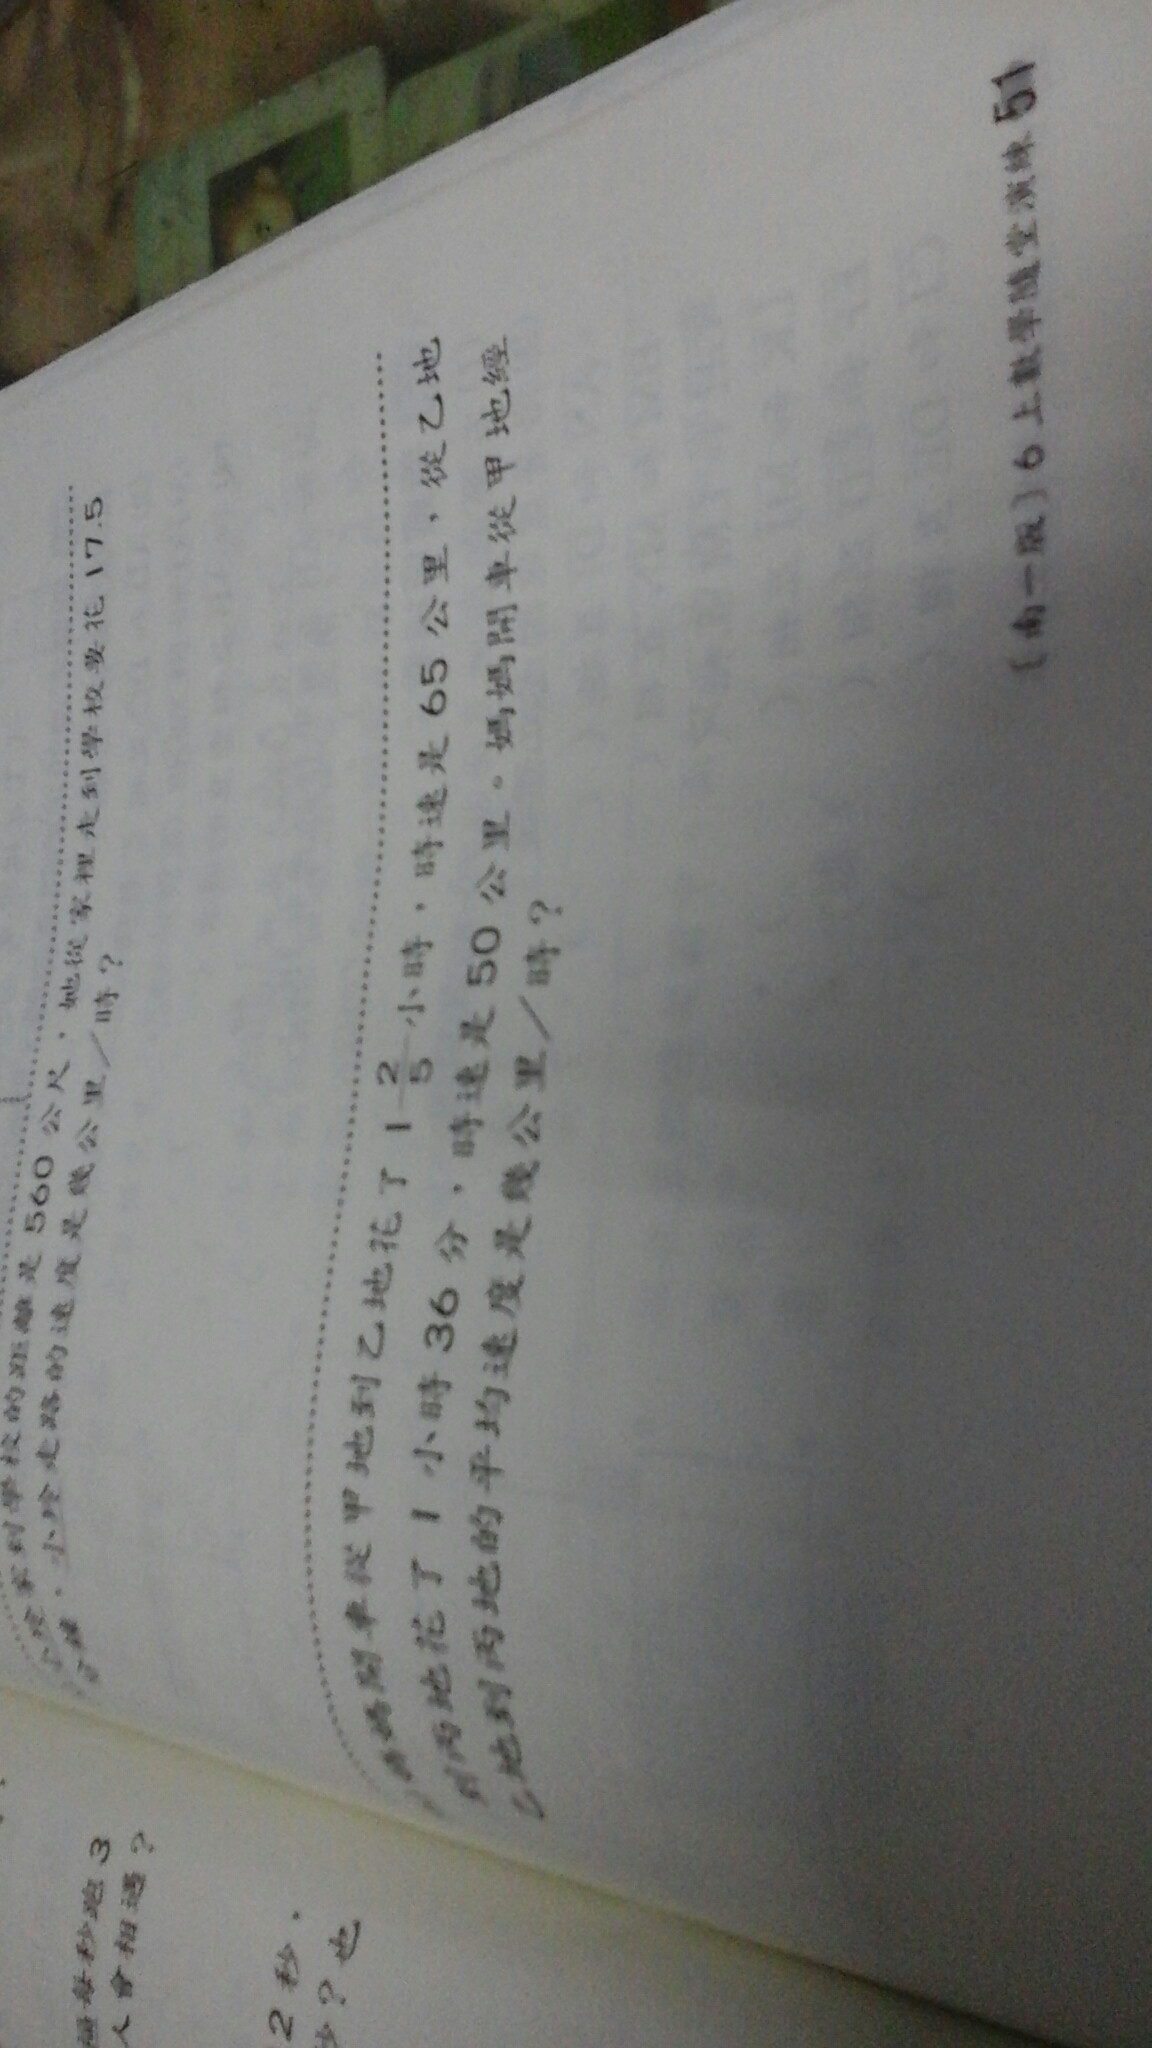 家到學校的距離是560公尺，她從家裡走到學校要花17.5
分鐘。小玲走路的速度是幾公里／時？
媽媽開車從甲地到乙地花了1 2/5 小時，時速是65公里，從乙地
到丙地花了1小時36分，時速是50公里。媽媽開車從甲地經
乙地到丙地的平均速度是幾公里／時？
〔南一版〕6上數學隨堂演練 51
每秒跑3
人會相遇？
2秒，
秒？也